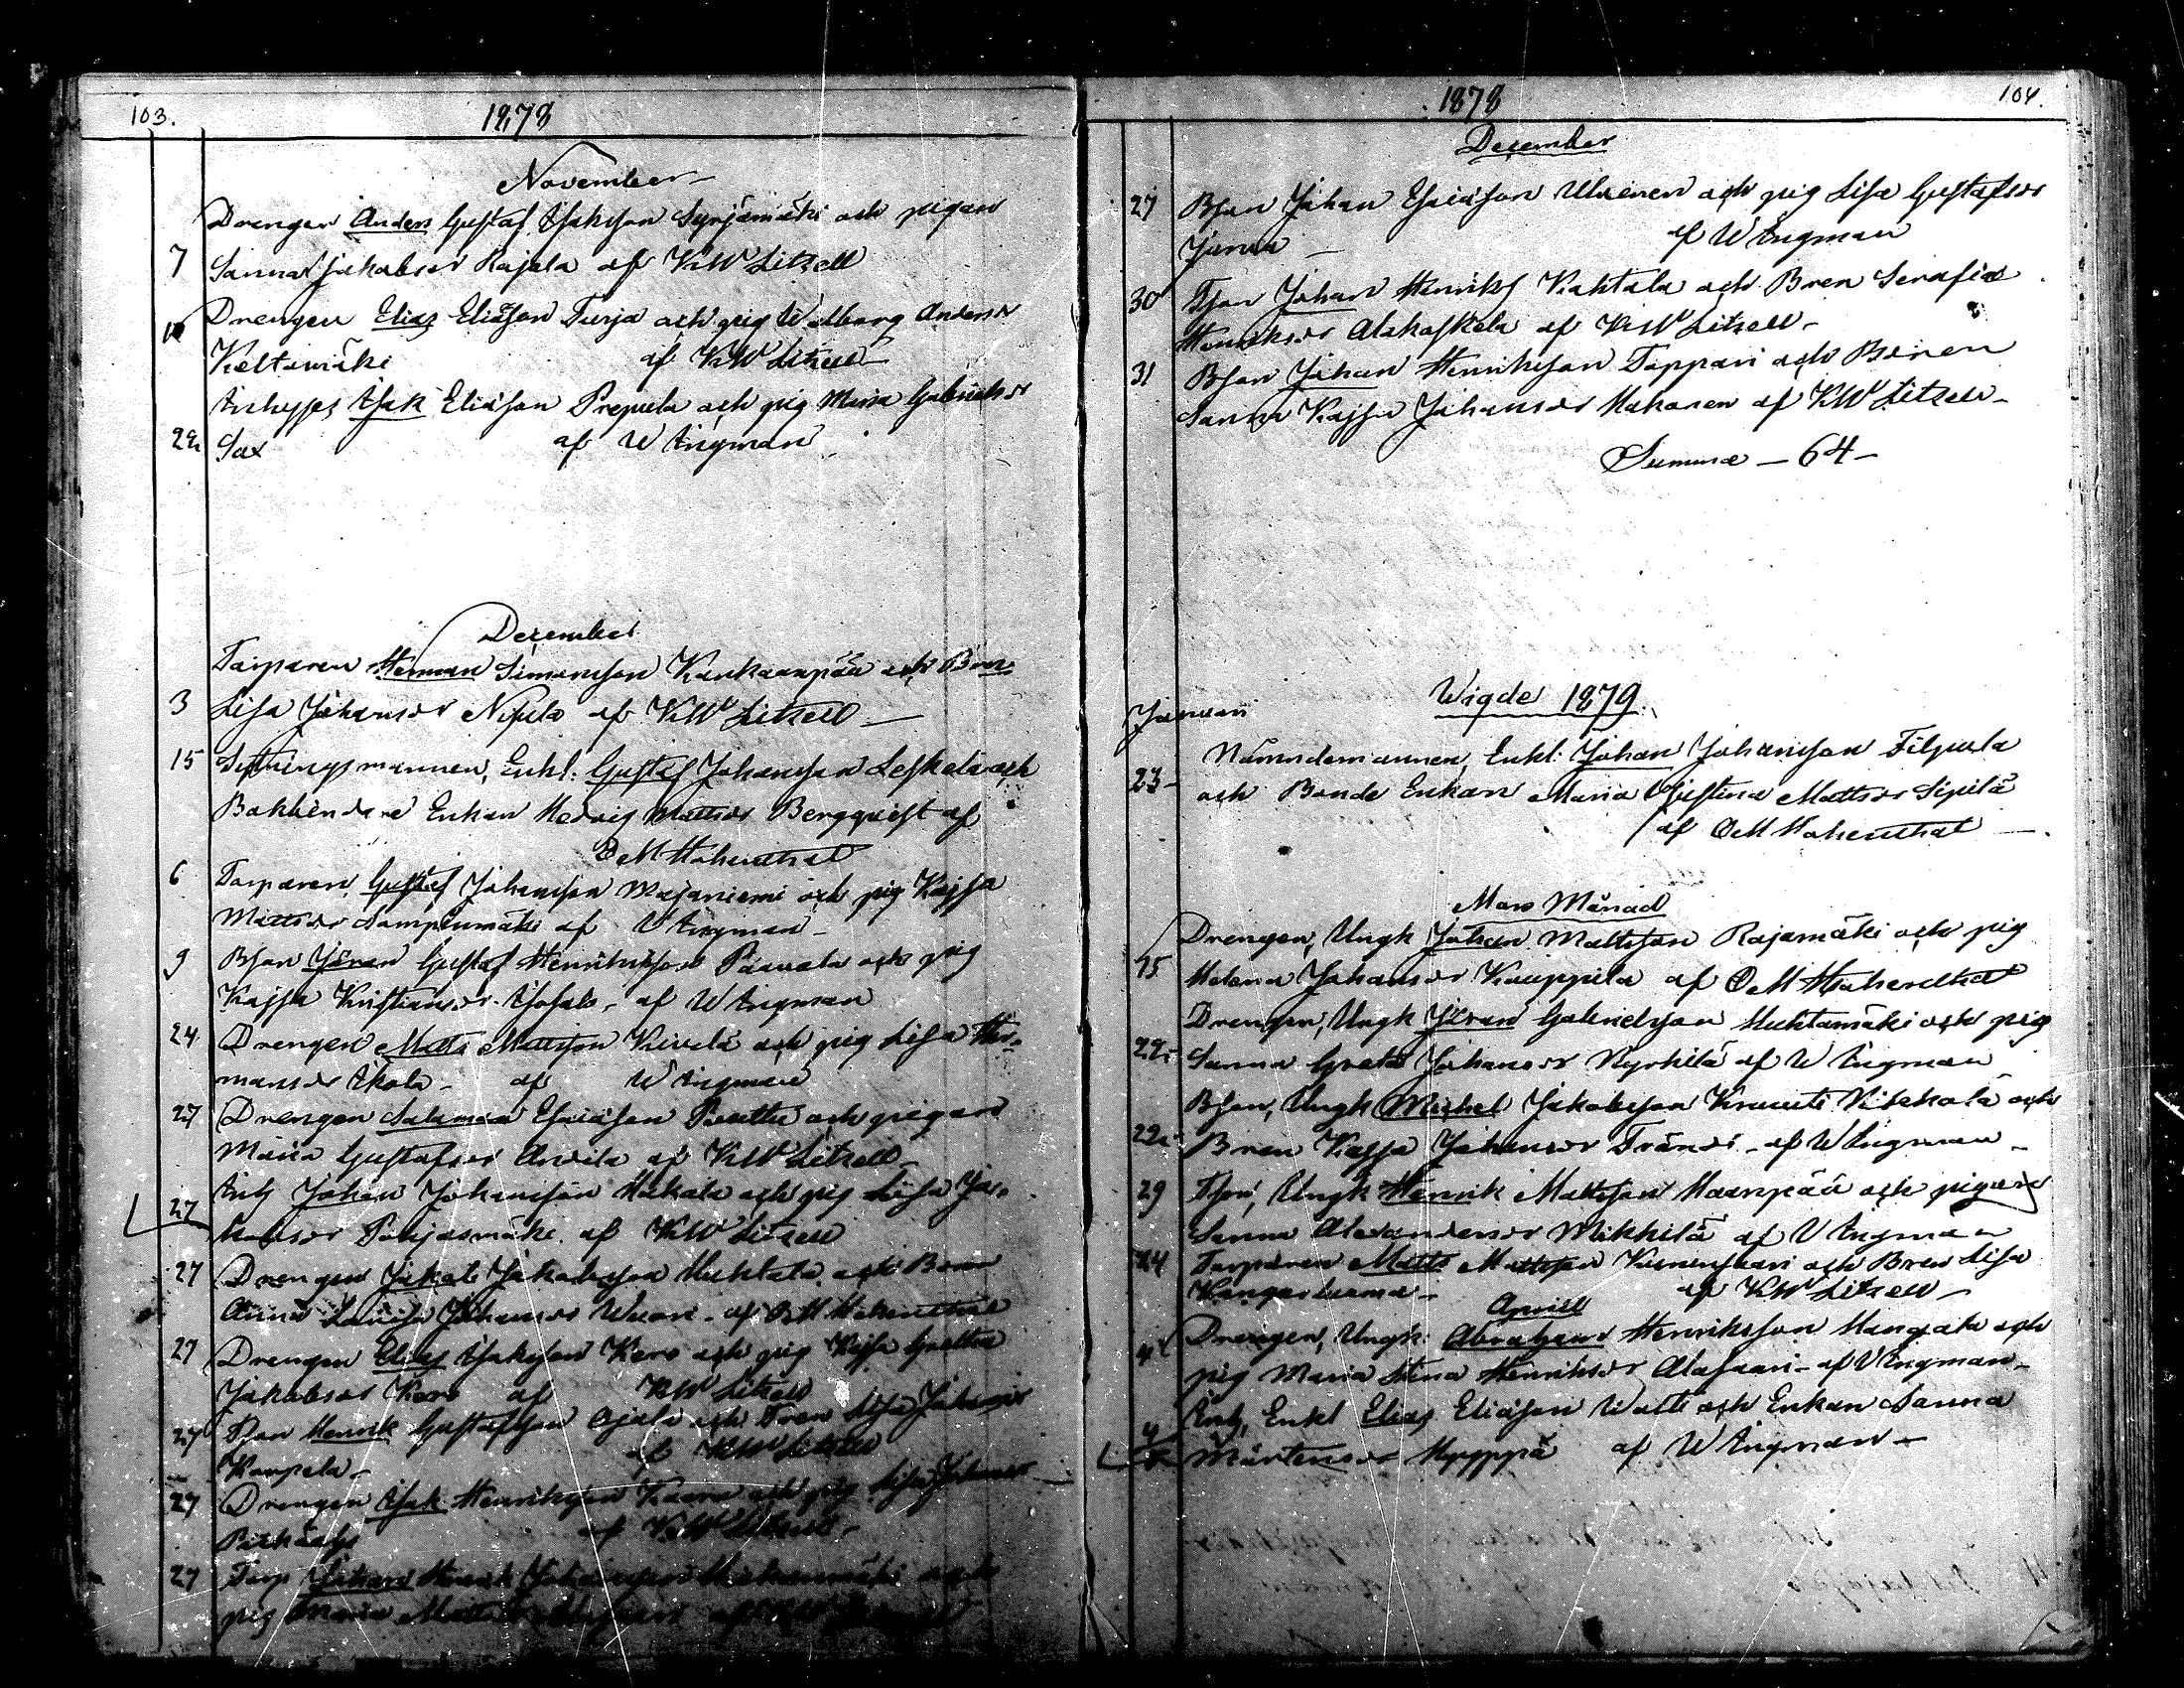 103.
1878
November
Drengen Anders Gustaf Isaksson Syrjämäki och pigan
7 Sanna Jakobsdr Rajala af KW Litzell
Drengen Elias Eliäson Turja och pig Walborg Andersdr
10 Keltamäki af KW Litzell
Inhyses Isak Eliäson Prepula och pig Maria Gabrielsdr
22 Sax af W Ingman
December
Torparen Herman Simonsson Kankaanpää och Bdren
3 Lisa Johansdr Nipula af KW Litzell
15 Lösningsmannen, Enkl. Gustaf Johansson Leskelä och
Bokbindare Enkan Hedvig Mattsdr Bergqvist af
OM Hohenthal
6 Torparen Gustaf Johansson Majaniemi och pig Kajsa
Mattsdr Lampinmäki af W Ingman
9 Bson Jöran Gustaf Henriksson Paavola och pig
Kajsa Kristiansdr af W Ingman
24 Drengen Matts Mattsson Kivelä och pig Lisa Her-
mansdr Ekola af W Ingman
27 Drengen Salomon Esaiäson och pigan
Maria Gustafsdr Anvila af KW Litzell
27 Inh Johan Johansson Hakala och pig Lisa Ja-
kobsdr Pohjasmäki af KW Litzell
27 Drengen Jakob Jakobsson Huhtala och Bdren
Anna Lovisa Johansdr Wuori af OM Hohenthal
27 Drengen Elias Isaksson Kero och pig Kajsa Gretha
Jakobsdr Kero af KW Litzell
27 Tson Henrik Gustafsson Ojala och Tdren Lisa Johansdr
Kanpela af KW Litzell
27 Drengen Isak Henriksson och pig Lisa Johansdr
af KW Litzell
27 Torp Johan Henrik Johansson och
pig Maria Mattsdr af KW Litzell
104.
1878
December
27 Bson Johan Esaiäson Ulvinen och pig Lisa Gustafsdr
Junna af W Ingman
30 Tson Johan Henriks Kahtala och Bdren Serafia
Henriksdr Alakoskela af KW Litzell
31 Bson Johan Henriksson Toppari och Bdren
Sanna Kajsa Johansdr Makonen af KW Litzell
Summa - 64 -
Wigde 1879.
Januari
Nämndemannen, Enkl. Johan Johansson Filpula
23 och Bonde Enkan Maria Justina Mattsdr Sipilä
af OM Hohenthal
Mars Månad
Drengen, Ungk Johan Mattsson Rajamäki och pig
15 Helena Johansdr Kauppila af OM Hohenthal
Drengen, Ungk Jöran Gabrielsson Huhtamäki och pig
22 Sanna Greta Johansdr Nyrhilä af W Ingman
Bson, Ungk Michel Jakobsson Kruuti Wiskala och
22 Bdren Kajsa Johansdr Frändi af W Ingman
29 Tson, Ungk Henrik Mattsson Haanpää och pigan
Sanna Alexandersdr Mikkilä af W Ingman
24 Torparen Matts Mattsson och Bdren Lisa
Kangasluoma af KW Litzell
April
4 Drengen, Ungk. Abraham Henriksson Hangala och
pig Maria Stina Henriksdr Alasaari af W Ingman
Inh, Enkl Elias Eliäson Watti och Enkan Sanna
4 Mårtensdr Hyyppä af W Ingman